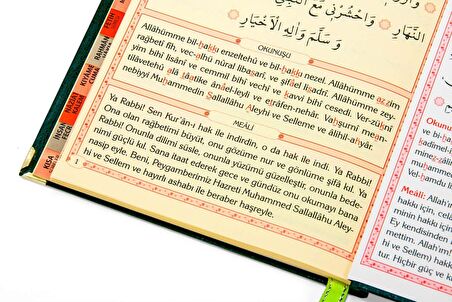 النَّهَارِ وَاحْشُرْنِي مَعَ النَّبِيِّ
وَسَلَّمَ وَاٰلِهِ الْاَخْيَارِ
OKUNUŞU
Allâhümme bil-hakkı enzeltehû ve bil-hakkı nezel. Allâhümme azzim
rağbetî fîh, vec-alhü nûral libasarî, ve şifâel lisadrî. Allâhümme Ver-züknî
yim bihî lisânî ve cemmil bihî vechî ve kavvi bihî cesedî. Ver-zuknî
tilâvetehû alâ tâatike ânael-leyli ve etrâfen-nehâr. Vahşurnî mean-
nebiyyi Muhammedin Sallallâhu Aleyhi ve Selleme ve âlihil-ahyâr.
MEÂLİ
Ya Rabbi! Sen Kur'ân-ı hak ile indirdin, o da hak ile indi. Ya Rabbi!
Ona olan rağbetimi büyüt, onu gözüme nur ve gönlüme şifâ kıl. Ya
Rabbi! Onunla dilimi süsle, onunla yüzümü güzelleştir, onunla bede-
nimi güçlü kıl. Sana itaat ederek gece ve gündüz onu okumayı bana
nasip eyle. Beni, Peygamberimiz Hazreti Muhammed Sallallâhu Aley-
hi ve Sellem ve hayırlı ashabı ile beraber haşreyle.
1
FETİH
RAHMAN
VAKIA
CUMA
KIYAME
MÜLK
KALEM
İNSAN
NEBE
KISA
Okunu
ve bil-
Meâli: Allah
hakkı için, cela
minin hakkı için
Ey kendisinden
mettim. Allah'ım!
hi ve Sellem) hakkı
tur. Hiçbir güç ve k